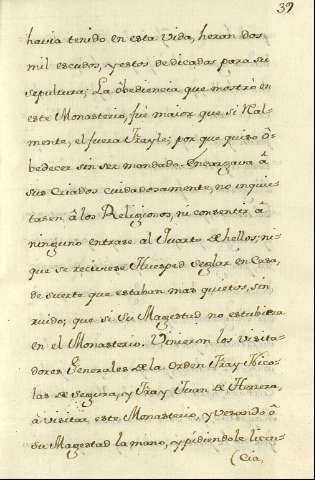 39
havia tenido en esta vida, heran dos
mil escudos, y estos dedicados para su
sepultura; La obediencia que mostró en
este Monasterio, fue maior que si Real-
mente, el fuera Frayle; por que quiso ô-
bedecer sin ser mandado. Encargava â
sus Criados cuidadosamente, no inquie-
tasen â los Religiosos, ni consentir â
ninguno entrase al Quarto de hellos; ni
que se reciviese Huesped Seglar en Casa,
de suerte que estaban mas quietos, sin
ruido; que si Su Magestad no estubiera
en el Monasterio. Vinieron los visita-
dores Generales de la Orden Fray Nico-
las de Segura, y Fray Juan de Herrera,
â visitar este Monasterio, y vesando â
Su Magestad la mano, y pidiendole licen-
(cia,